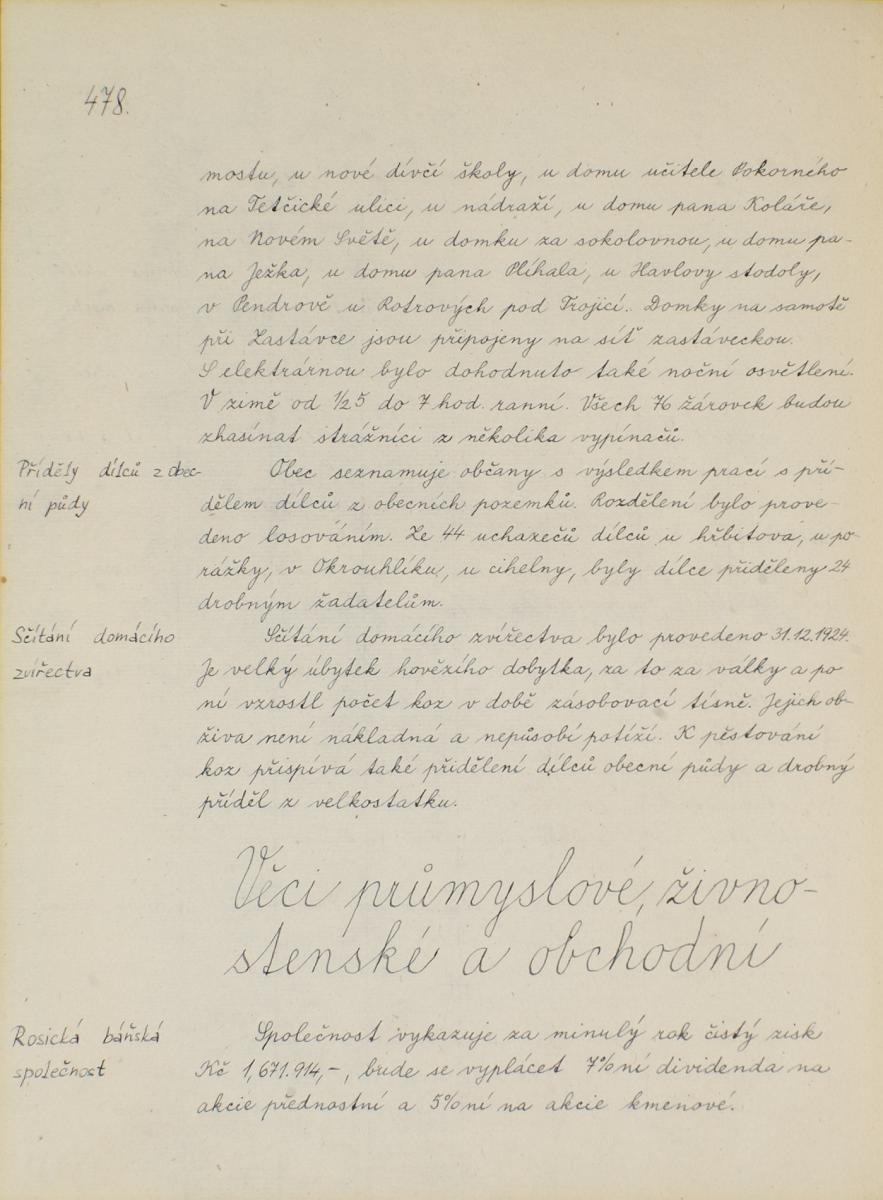 478.
mostu, u nové dívčí školy, u domu učitele Pokorného
na Tetčické ulici, u nádraží, u domu pana Koláře,
na Novém Světě, u domku za sokolovnou, u domu pa-
na Ježka, u domu pana Plíhala, u Havlovy stodoly,
v Pendrově u Rotrových pod Trojicí. Domky na samotě
při Zastávce jsou připojeny na síť zastáveckou.
S elektrárnou bylo dohodnuto také noční osvětlení.
V zimě od 1/2 5 do 7 hod. ranní. Všech 76 žárovek budou
zhasínat strážníci z několika vypínačů.
Příděly dílců z obec-
ní půdy
Obec seznamuje občany s výsledkem prací s pří-
dělem dílců z obecních pozemků. Rozdělení bylo prove-
deno losováním. Ze 44 uchazečů dílců u hřbitova, u po-
rážky, v Okrouhlíku, u cihelny, byly dílce přiděleny 24
drobným žadatelům.
Sčítání domácího
zvířectva
Sčítání domácího zvířectva bylo provedeno 31.12.1924.
Je velký úbytek hovězího dobytka, za to za války a po
ní vzrostl počet koz v době zásobovací tísně. Jejich ob-
živa není nákladná a nepůsobí potíží. K pěstování
koz přispívá také přidělení dílců obecní půdy a drobný
příděl z velkostatku.
Věci průmyslové, živno-
stenské a obchodní
Rosická báňská
společnost
Společnost vykazuje za minulý rok čistý zisk
Kč 1,671.914,-, bude se vyplácet 7%ní dividenda na
akcie přednostní a 5%ní na akcie kmenové.